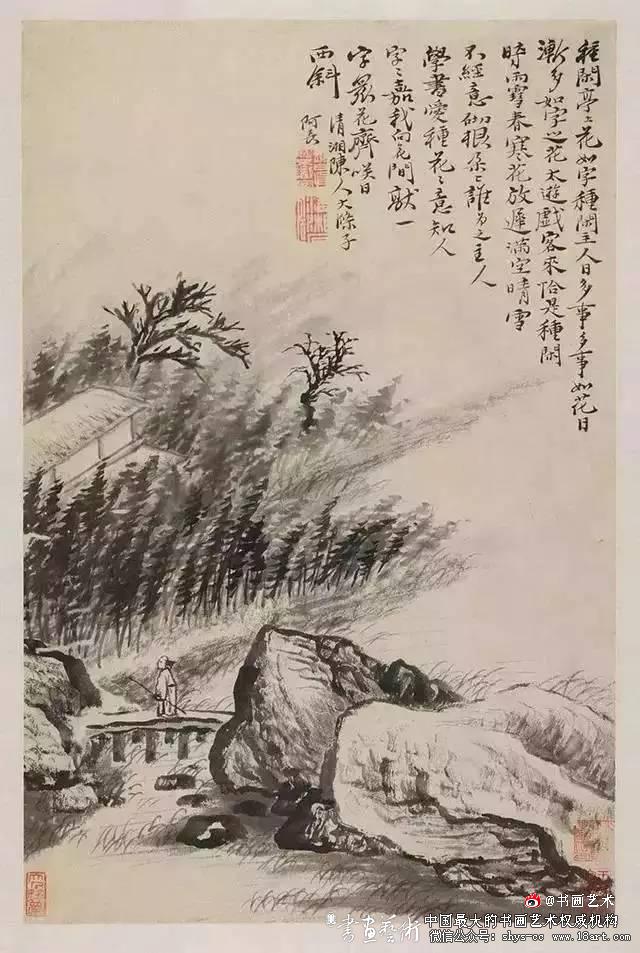 種閑亭上花如字種閑主人日多事多事如花日
漸多如字之花太遊戲客來恰是種閑
時雨雪春寒花放遲滿空晴雪
不經意砌根朵〻誰為之主人
學書愛種花〻意知人
字〻嘉我向花間獻一
字眾花齊咲日
西斜
清湘陳人大滌子
阿長
@书画艺术
書畫藝術
中国最大的书画艺术权威机构
微信公众号：shys-cc www.18art.com